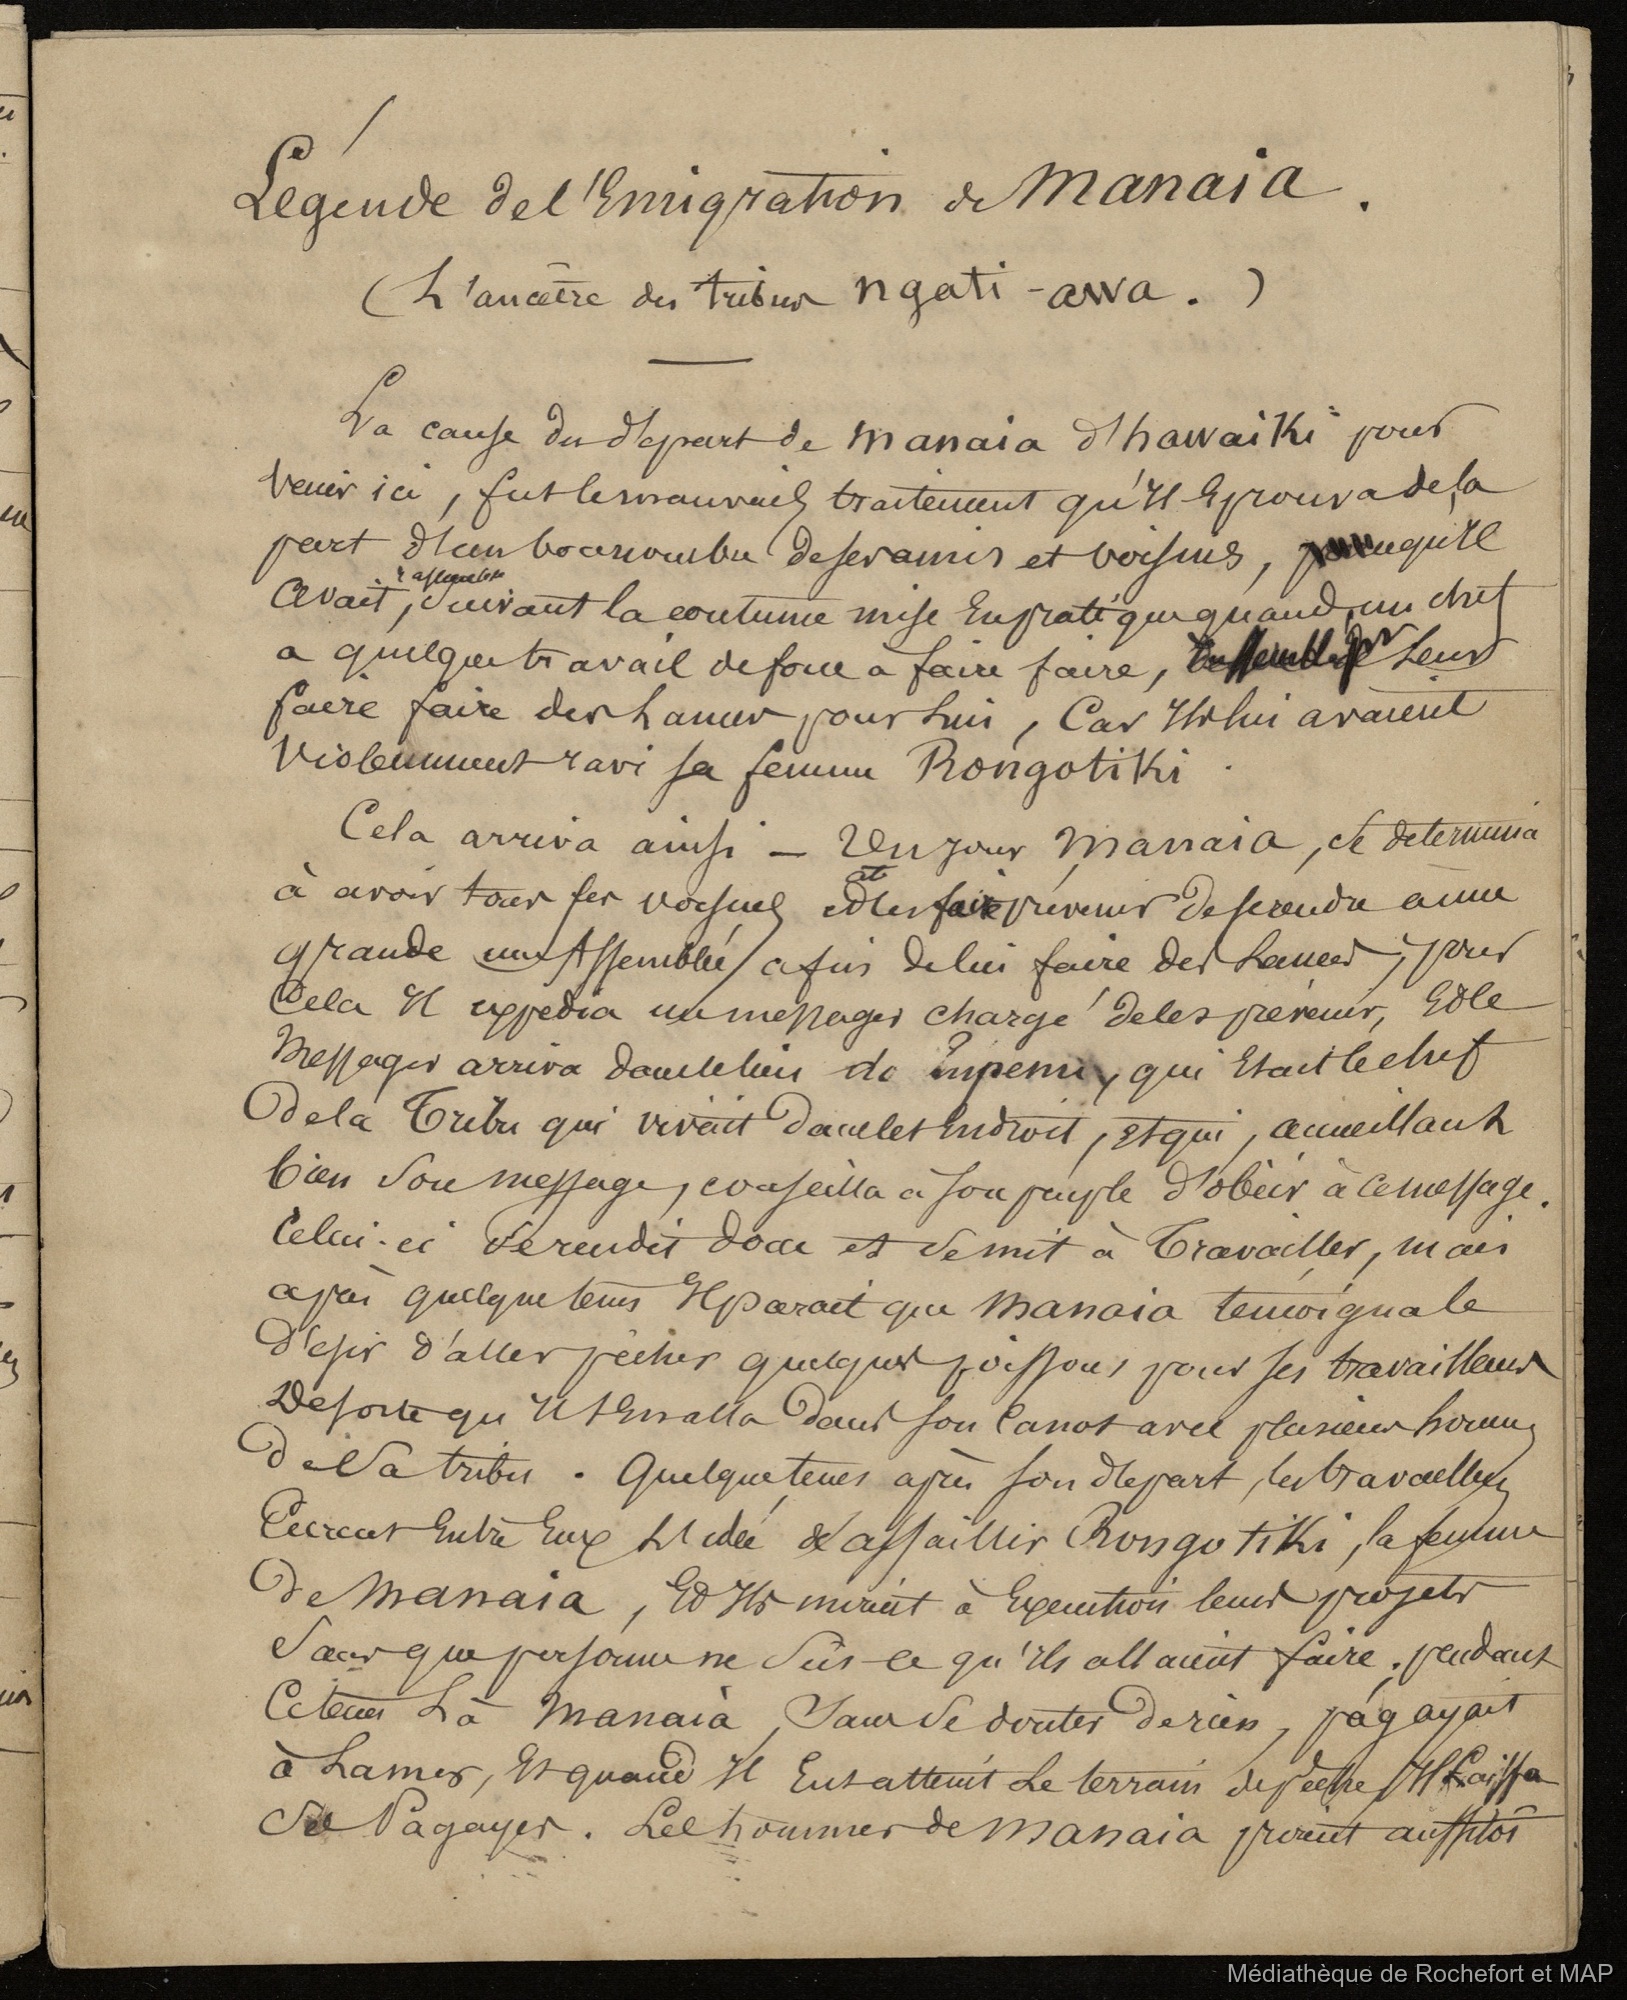 Légende de l'Emigration de Manaia.
(L'ancêtre des tribus ngati-awa.)
La cause du départ de Manaia d'hawaiki pour
venir ici, fut le mauvais traitement qu'Il Eprouva de la
part d'un bon nombre de ses amis et voisins, qu'Il
avait, rassemblés suivant la coutume mise En pratique quand, un chef
a quelque travail de force à faire faire, pr Leur
faire faire des Lances pour Lui, Car Ils lui avaient
violemment ravi sa femme Rongotiki.
Cela arriva ainsi — Un jour Manaia, se determina
à avoir tous ses voisins et les faire prévenir de se rendre à une
grande Assemblée afin de lui faire des Lances, pour
Cela Il expédia un messager chargé de les prévenir, Et le
Messager arriva dans le lieu de, qui Etait le chef
de la Tribu qui vivait dans cet Endroit, Et qui, accueillant
bien son message, conseilla à son peuple d'obéir à ce message.
Celui-ci se rendit donc et se mit à Travailler, mais
après quelque tems Il parait que Manaia temoigna le
désir d'aller pêcher quelques poissons pour ses travailleurs
De sorte qu'Il s'En alla dans son Canot avec plusieurs hommes
de Sa tribu. Quelque tems après son départ, les travailleurs
Eurent Entre Eux L'idée d'assaillir Rongotiki, la femme
de Manaia, Et Ils mirent à Execution leurs projets
sans que personne ne sût ce qu'ils allaient faire. pendant
Ce tems Là Manaia, Sans Se douter de rien, pagayait
à La mer, Et quand Il Eut atteint Le terrain de pêche Il Laissa
de Pagayer. Les hommes de Manaia prirent aussitôt
Médiathèque de Rochefort et MAP